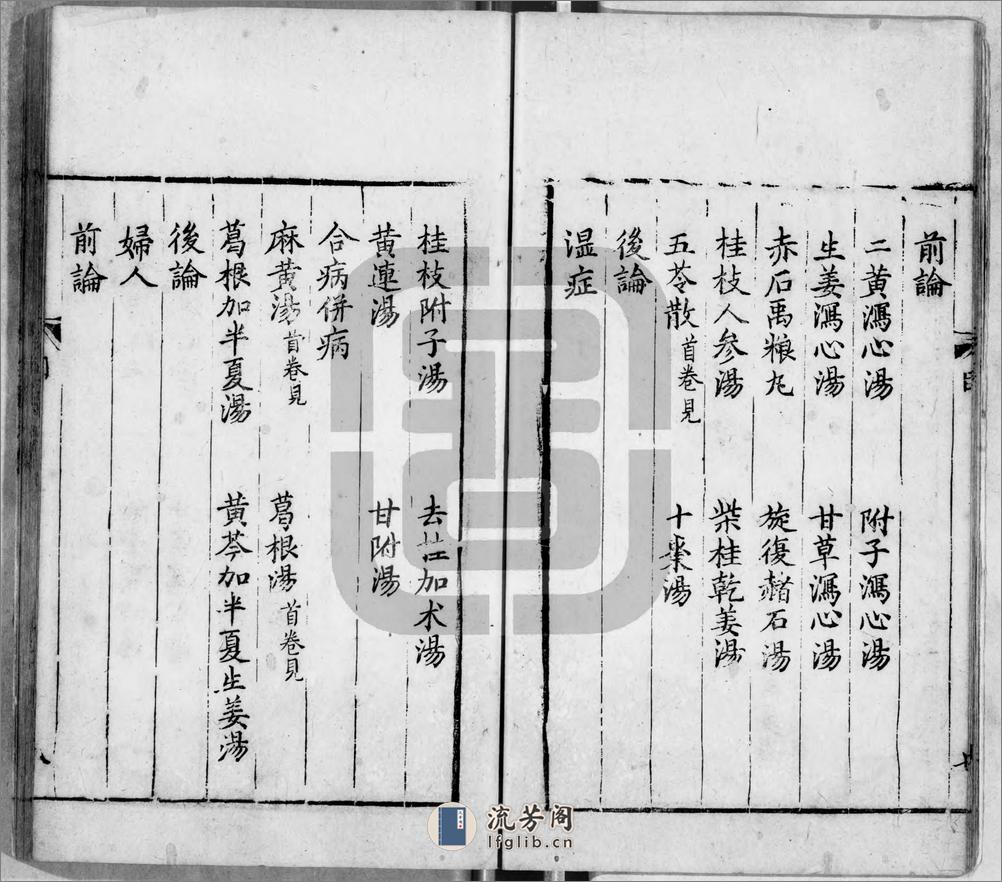 前論
二黄瀉心湯　附子瀉心湯
生姜瀉心湯　甘草瀉心湯
赤石禹粮丸　旋復赭石湯
桂枝人參湯　柴桂乾姜湯
五苓散首卷見　十棗湯
後論
溫症
桂枝附子湯　去桂加术湯
黄連湯　甘附湯
合病併病
麻黄湯首卷見　葛根湯首卷見
葛根加半夏湯　黄芩加半夏生姜湯
後論
婦人
前論
流芳阁
lfglib.cn